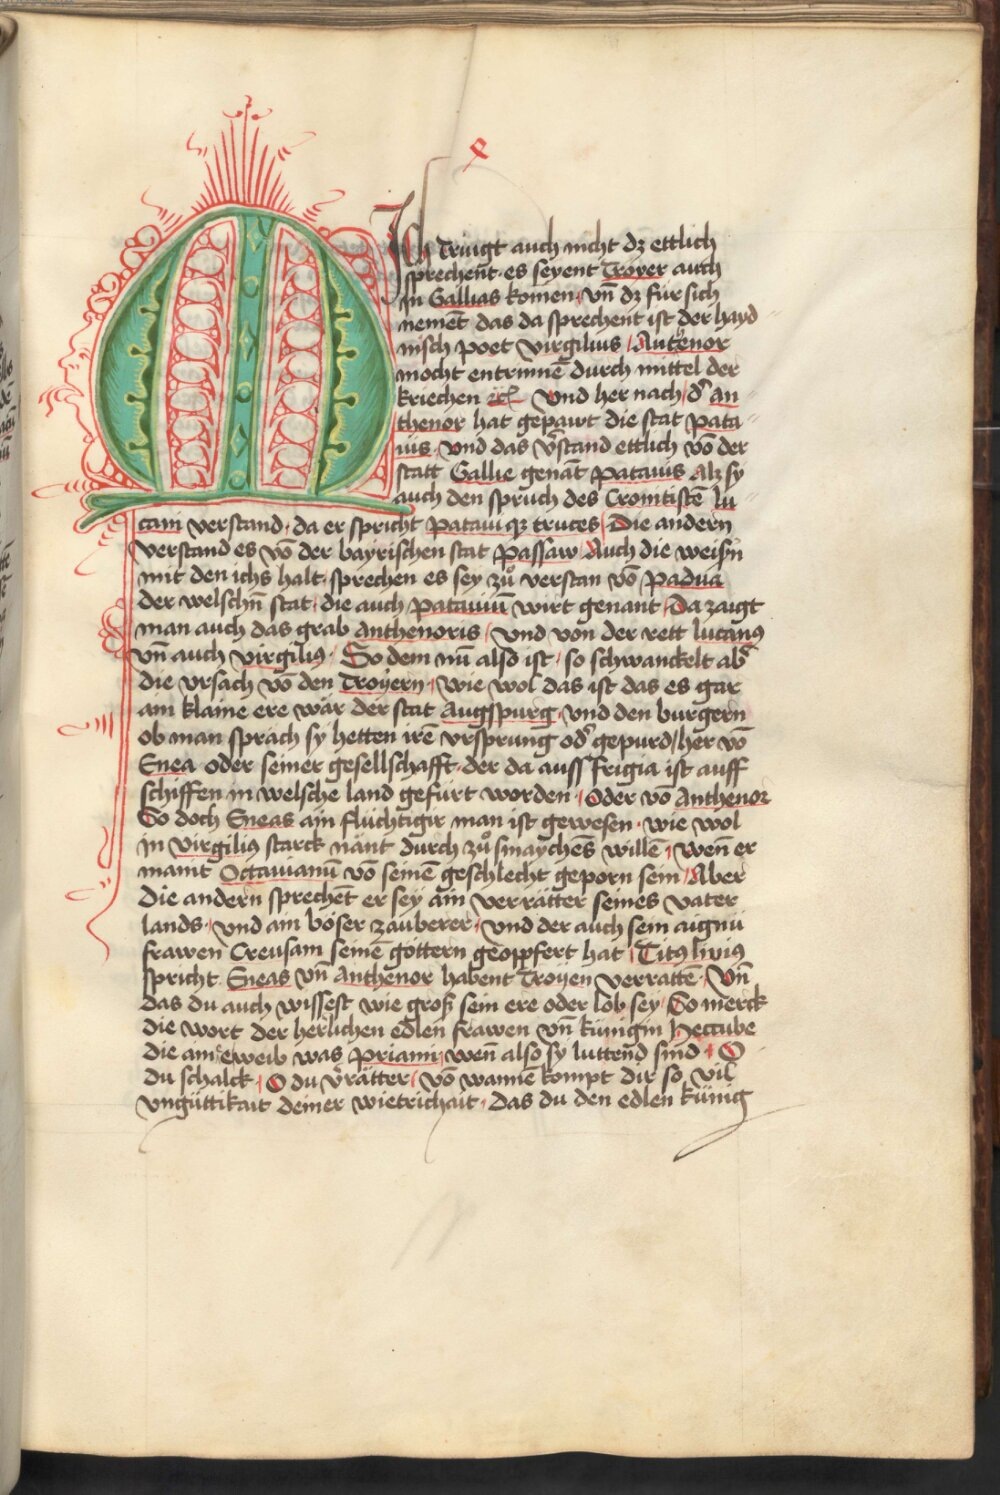 MIch trüigt auch nicht dz ettlich
sprechent · es seyent Troyer auch
in Gallias komen, vn̄ dz für sich
nemēt das da sprechent ist der hayd
nisch poet virgilius / Anthenor
mocht entrinnē durch mittel der
kriechen ꝛc̄ Vnd her nach / d̓ an
thenor hat gepawt die stat pata
uis, vnd das v̓stand ettlich vō der
statt Gallie genāt patauis alz sy
auch den spruch des Cronitistē lu
cani verstand · da er spricht patauiqꝫ truces / Die andern
verstand es vō der bayrischen stat passaw Auch die weisn̄
mit den ichs halt · sprechen es sey zů verstan vō padua
der welschn̄ stat · die auch patauiū wirt genant / Da zaigt
man auch das grab anthenoris / vnd von der rett lucanꝰ
vn̄ auch virgiliꝰ · So dem nū also ist / so schwanckelt ab̓
die vrsach vō den troyern / wie wol das ist das es gar
am klaine ere wär der stat augspurg / vnd den burgern
ob man spräch sy hetten irē vrsprung od̓ gepurd / her vō
Enea oder seiner gesellschafft · der da auss frigia ist auff
schiffen in welsche land gefürt worden / Oder vō anthenor
So doch Eneas ain flüchtigir man ist gewesen · wie wol
in virgiliꝰ starck nänt durch zů smaychēs willē / wen̄ er
maint Octauianū vō seinē geschlecht geporn sein / Aber
die andern sprechēt er sey ain verrätter seines vater
lands / vnd ain böser zauberer / vnd der auch sein aignü
frawen Creusam seinē göttern geopfert hat / Titꝰ liviꝰ
spricht Eneas vn̄ anthenor habent Troyen verrattē / Vn̄
das du auch wissest wie groß sein ere oder lob sey / So merck
die wort der herlichen edlen frawen vn̄ künigin heccube
die ain eweib was priami, wen̄ also sy luttend sind / O
du schalck / O du v̓rätter / vō wannē kompt dir so vil
vngüttikait deiner wietrichait · das du den edlen künig